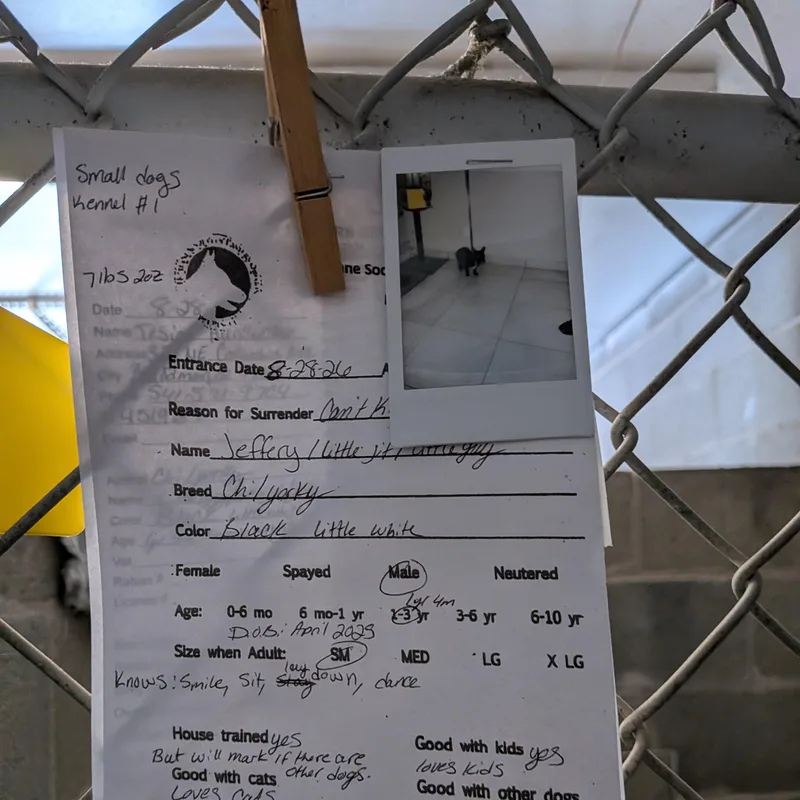 Small dogs
Kennel #1
7lbs 2oz
ne Soc
Entrance Date 8-28-26 A
Reason for Surrender Can't K
Name Jeffery / little jit / little guy
Breed Chi/yorky
Color Black little white
Female Spayed Male Neutered
1yr 4m
Age: 0-6 mo 6 mo-1 yr 1-3 yr 3-6 yr 6-10 yr
D.O.B: April 2025
Size when Adult: SM MED LG X LG
Knows: Smile, Sit, Stay lay down, dance
House trained yes
But will mark if there are
other dogs.
Good with kids yes
loves kids
Good with cats
Loves cats
Good with other dogs